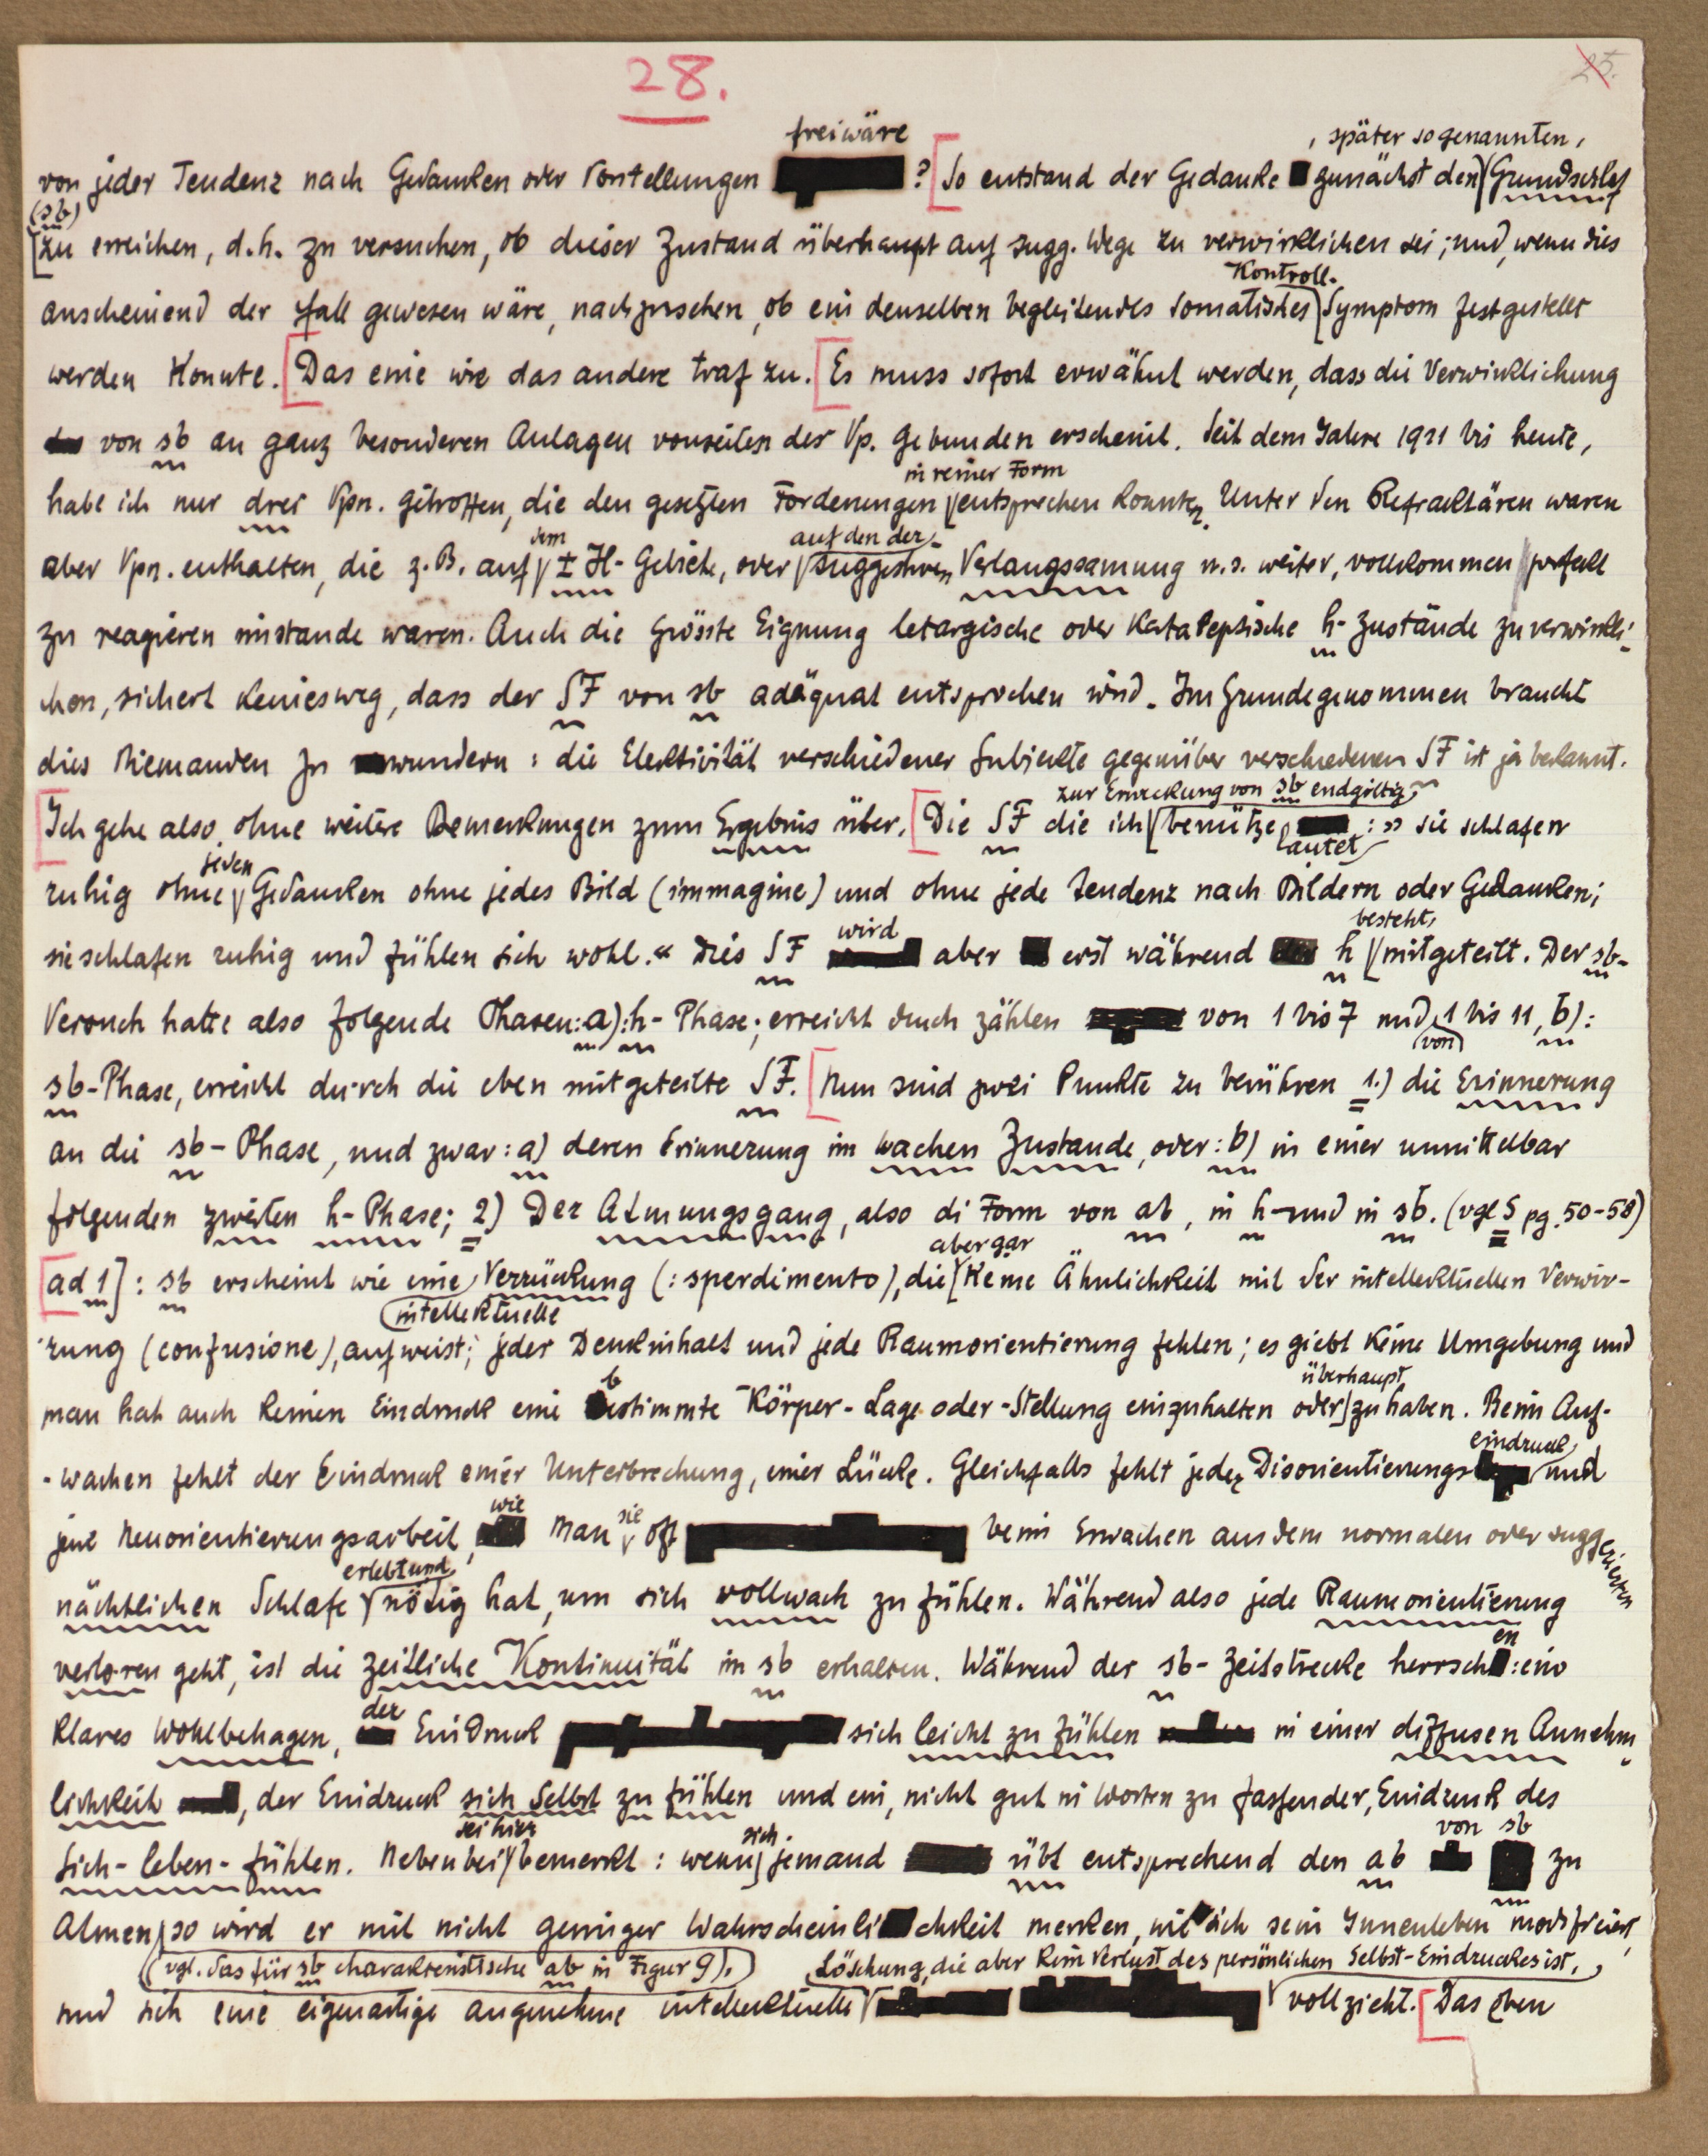 28.
25.
freiwäre , später sogenannten,
von jeder Tendenz nach Gedanken oder Vorstellungen ? [So entstand der Gedanke zunächst den Grundschlaf
(sb)
[zu erreichen, d.h. zu versuchen, ob dieser Zustand überhaupt auf sugg. Wege zu verwirklichen sei; und, wenn dies
Kontroll-
anscheinend der Fall gewesen wäre, nachzusehen, ob ein denselben begleitendes somatisches Symptom festgestellt
werden konnte. [Das eine wie das andere traf zu. [Es muss sofort erwähnt werden, dass die Verwirklichung
von sb an ganz besonderen Anlagen vonseiten der Vp. gebunden erscheint. Seit dem Jahre 1921 bis heute,
in reiner Form
habe ich nur drei Vpn. getroffen, die den gesetzten Forderungen entsprechen konnten. Unter den Refraktären waren
dem auf den der
aber Vpn. enthalten, die z.B. auf ± H-Gebiete, oder suggestiven Verlangssamung u.s. weiter, vollkommen perfekt
zu reagieren imstande waren. Auch die grösste Eignung letargische oder kataleptische h-Zustände zu verwirkli-
chen, sichert keinesweg, dass der SF von sb adäquat entsprochen wird. Im Grunde genommen braucht
dies Niemanden zu wundern: die Elektivität verschiedener Subjekte gegenüber verschiedenen SF ist ja bekannt.
zur Erweckung von sb endgiltig
[Ich gehe also ohne weitere Bemerkungen zum Ergebnis über. [Die SF die ich benütze : „ sie schlafen
lautet
jeden
ruhig ohne Gedanken ohne jedes Bild (immagine) und ohne jede Tendenz nach Bildern oder Gedanken;
wird besteht,
sie schlafen ruhig und fühlen sich wohl.“ Dies SF aber erst während h mitgeteilt. Der sb-
Versuch hatte also folgende Phasen: a): h-Phase; erreicht durch zählen von 1 bis 7 und 1 bis 11, b):
(von)
sb-Phase, erreicht durch die eben mitgeteilte SF. [Nun sind zwei Punkte zu berühren 1.) die Erinnerung
an die sb-Phase, und zwar: a) deren Erinnerung im wachen Zustande, oder: b) in einer unmittelbar
folgenden zweiten h-Phase; 2) Der Atmungsgang, also di Form von ab, in h- und in sb. (vgl S pg. 50-58)
aber gar
[ad 1]: sb erscheint wie eine Verzückung (: sperdimento), die keine Ähnlichkeit mit der intellektuellen Verwir-
intellektuelle
rung (confusione), aufweist; jeder Denkinhalt und jede Raumorientierung fehlen; es giebt keine Umgebung und
b überhaupt
man hat auch keinen Eindruck eine bestimmte Körper-Lage oder -Stellung einzuhalten oder zu haben. Beim Auf-
eindruck
-wachen fehlt der Eindruck einer Unterbrechung, einer Lücke. Gleichfalls fehlt jeder Disorientierungs und
wie sie
jene Neuorientierungsarbeit, man oft beim Erwachen aus dem normalen oder suggerierten
erlebt und
nächtlichen Schlafe nötig hat, um sich vollwach zu fühlen. Während also jede Raumorientierung
en
verloren geht, ist die zeitliche Kontinuität im sb erhalten. Während der sb-Zeitstrecke herrsch: ein
der
klares Wohlbehagen, Eindruck sich leicht zu fühlen in einer diffusen Annehm-
lichkeit , der Eindruck sich selbst zu fühlen und ein, nicht gut in Worten zu fassender, Eindruck des
sei hier sich von sb
Sich-leben-fühlen. Nebenbei bemerkt: wenn jemand übt entsprechend den ab zu
Atmen so wird er mit nicht geringer Wahrscheinlichkeit merken, wie sich sein Innenleben modifiziert,
(vgl. das für sb charakteristische ab in Figur 9). Löschung, die aber kein Verlust des persönlichen Selbst-Eindruckes ist,
und sich eine eigenartige angenehme intellektuelle vollzieht. [Das oben